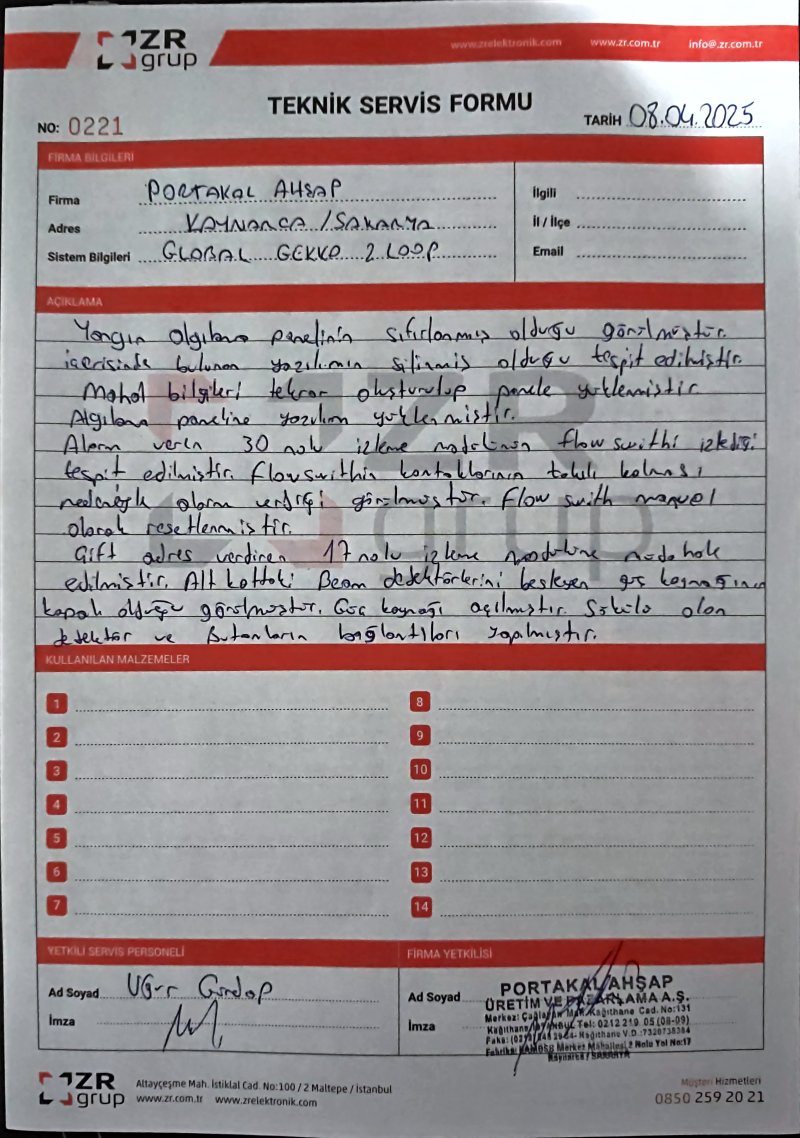 ZR grup
www.zrelektronik.com www.zr.com.tr info@.zr.com.tr
TEKNİK SERVİS FORMU
NO: 0221
TARİH 08.04.2025
FİRMA BİLGİLERİ
Firma PORTAKAL AHŞAP
Adres KAYNARCA / SAKARYA
Sistem Bilgileri GLOBAL GEKKO 2 LOOP
İlgili
İl / İlçe
Email
AÇIKLAMA
Yangın algılama panelinin sıfırlanmış olduğu görülmüştür.
içerisinde bulunan yazılımın silinmiş olduğu tespit edilmiştir.
Mahal bilgileri tekrar oluşturulup panele yüklenmiştir.
Algılama paneline yazılım yüklenmiştir.
Alarm veren 30 nolu izleme modülünün flow swithi izlediği
tespit edilmiştir. flowswithin kontaklarının takılı kalması
nedeniyle alarm verdiği görülmüştür. flow swith manuel
olarak resetlenmiştir.
Çift adres verdiren 17 nolu izleme modülüne müdahale
edilmiştir. Alt kattaki Beam dedektörlerini besleyen güç kaynağının
kapalı olduğu görülmüştür. Güç kaynağı açılmıştır. Sökülü olan
dedektör ve Butonların bağlantıları yapılmıştır.
KULLANILAN MALZEMELER
1
2
3
4
5
6
7
8
9
10
11
12
13
14
YETKİLİ SERVİS PERSONELİ
Ad Soyad Uğur
İmza
FİRMA YETKİLİSİ
Ad Soyad
İmza
PORTAKAL AHŞAP
ÜRETİM VE PAZARLAMA A.Ş.
Merkez: Kağıthane Cad. No:131
Kağıthane/İSTANBUL Tel: 0212 219 05 (08-09)
Kağıthane V.D.:7320738384
Fabrika: Merkez Mahallesi 2 Nolu Yol No:17
Kaynarca / SAKARYA
ZR grup
Altayçeşme Mah. İstiklal Cad. No:100 / 2 Maltepe / İstanbul
www.zr.com.tr www.zrelektronik.com
Müşteri Hizmetleri
0850 259 20 21